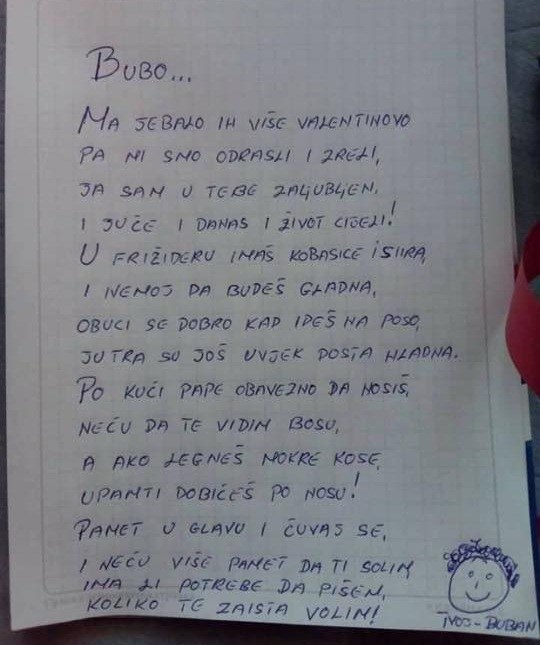 BUBO...
MA JEBALO IH VIŠE VALENTINOVO
PA MI SMO ODRASLI I ZRELI,
JA SAM U TEBE ZALJUBLJEN.
I JUČE I DANAS I ŽIVOT CIJELI!
U FRIŽIDERU IMAŠ KOBASICE I SIRA,
I NEMOJ DA BUDEŠ GLADNA,
OBUCI SE DOBRO KAD IDEŠ NA POSO,
JUTRA SU JOŠ UVJEK DOSTA HLADNA.
PO KUĆI PAPE OBAVEZNO DA NOSIŠ,
NEĆU DA TE VIDIM BOSU,
A AKO LEGNEŠ MOKRE KOSE,
UPAMTI DOBIĆEŠ PO NOSU!
PAMET U GLAVU I ČUVAJ SE,
I NEĆU VIŠE PAMET DA TI SOLIM
IMA LI POTREBE DA PIŠEM,
KOLIKO TE ZAISTA VOLIM!
TVOJ - BUBAN